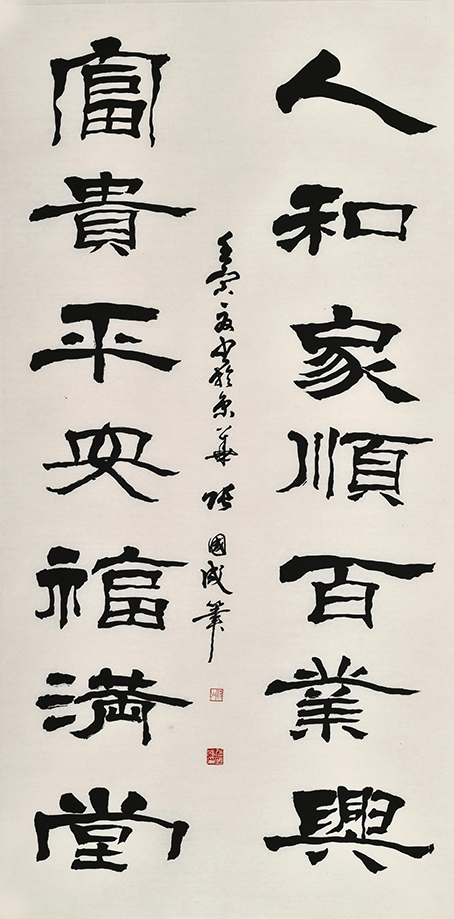 人和家順百業興
富貴平安福滿堂
壬寅夏書於京華 張國成筆